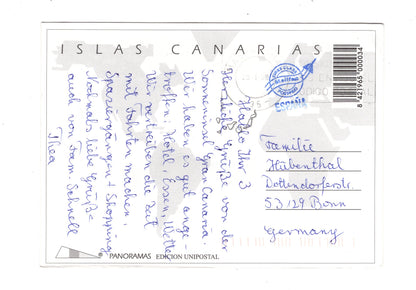 ISLAS CANARIAS
ESPAÑA
8 421966 000034
Hallo Ihr 3
Herzliche Grüße von der
Sonneninsel Gran Canaria.
Wir haben es gut ange-
troffen: Hotel, Essen, Wetter.
Wir vertreiben die Zeit
mit Fahrten machen,
Spaziergängen + Shopping
Nochmals liebe Grüße
auch von Fam. Schnell
Thea
Familie
Hübenthal
Dottendorferstr.
53129 Bonn
Germany
PANORAMAS EDICION UNIPOSTAL